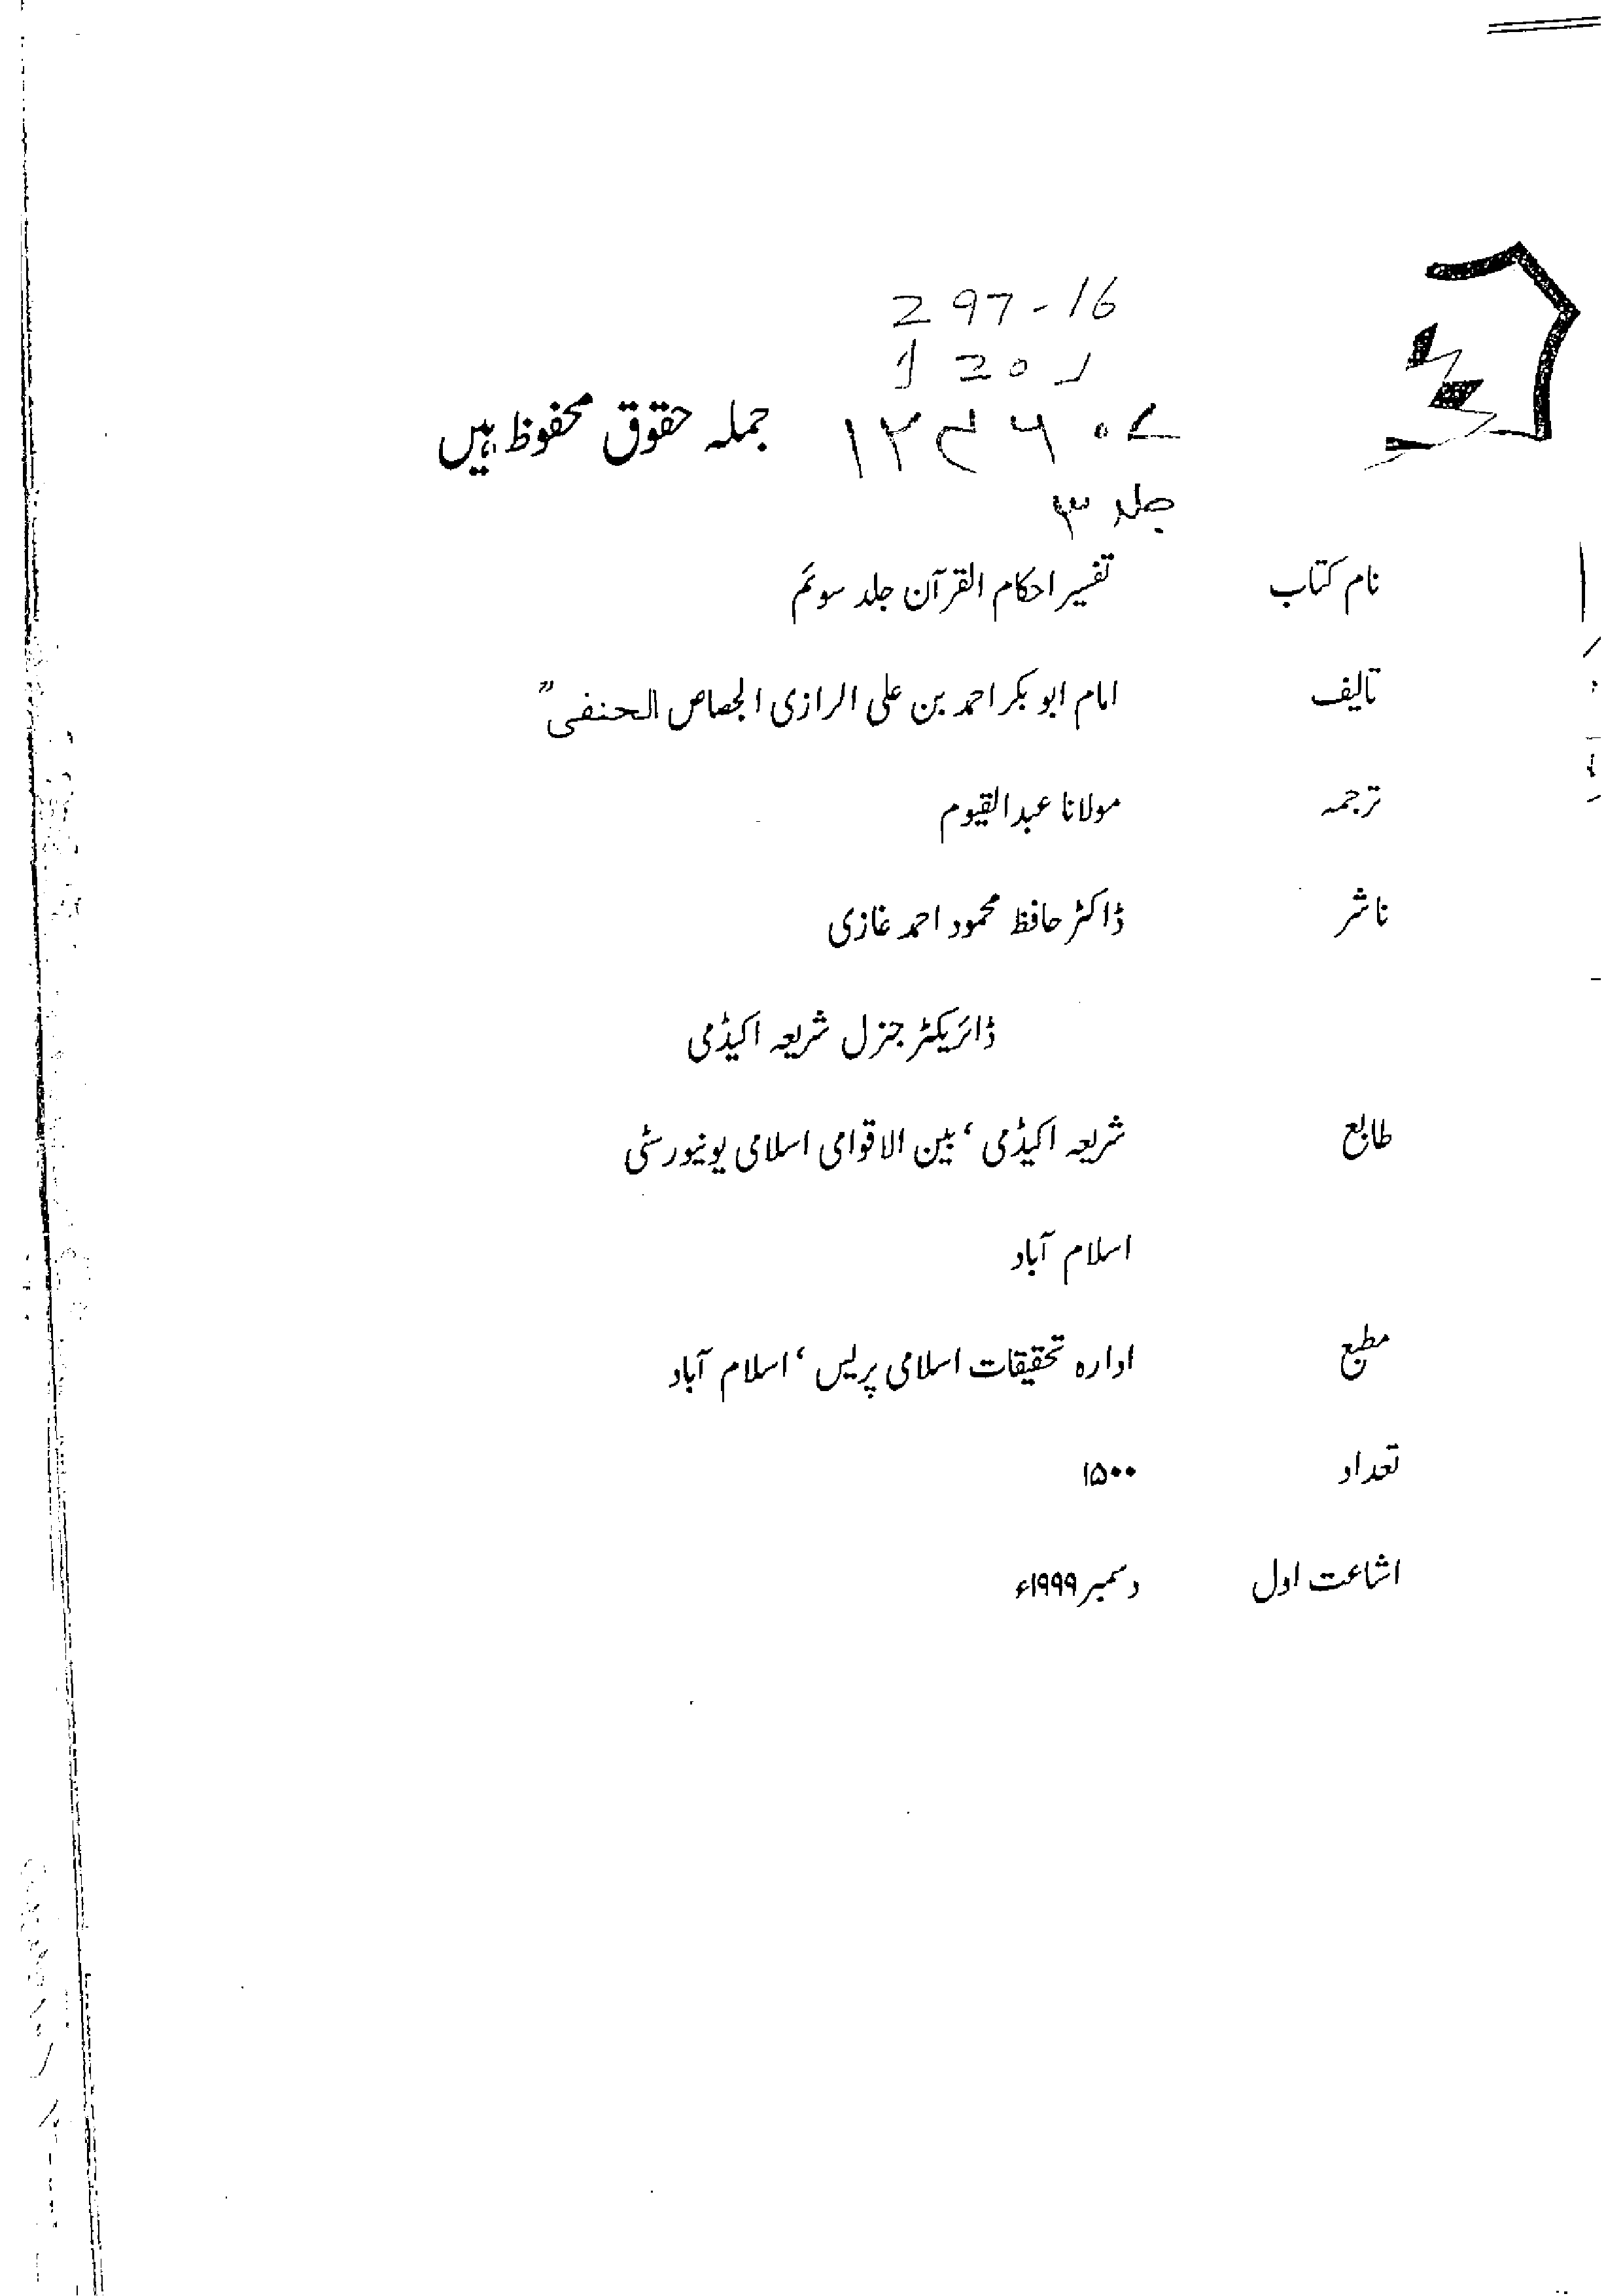 297-16
جملہ حقوق محفوظ ہیں
جلد ۳
نام کتاب تفسیر احکام القرآن جلد سوئم
تالیف امام ابو بکر احمد بن علی الرازی الجصاص الحنفی"
ترجمہ مولانا عبدالقیوم
ناشر ڈاکٹر حافظ محمود احمد غازی
ڈائریکٹر جنرل شریعہ اکیڈمی
طابع شریعہ اکیڈمی، بین الاقوامی اسلامی یونیورسٹی
اسلام آباد
مطبع ادارہ تحقیقات اسلامی پریس، اسلام آباد
تعداد ۱۵۰۰
اشاعت اول دسمبر ۱۹۹۹ء